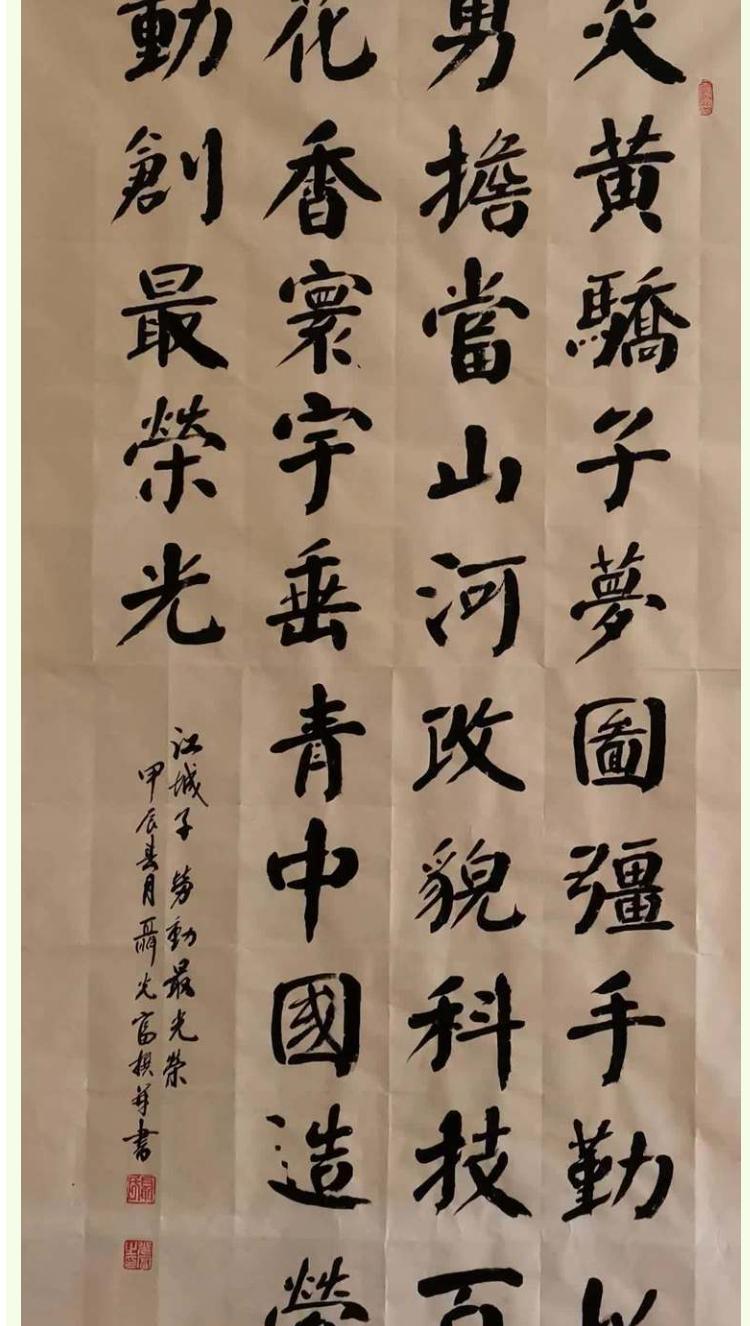 炎黃驕子夢圖彊手勤
男擔當山河改貌科技百
花香寰宇垂青中國造勞
動創最榮光
江城子 勞動最光榮
甲辰春月聶光富撰并書